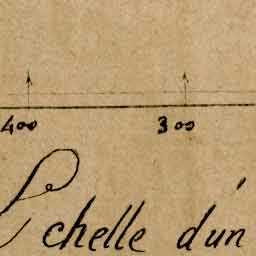 400 300
Echelle d'un